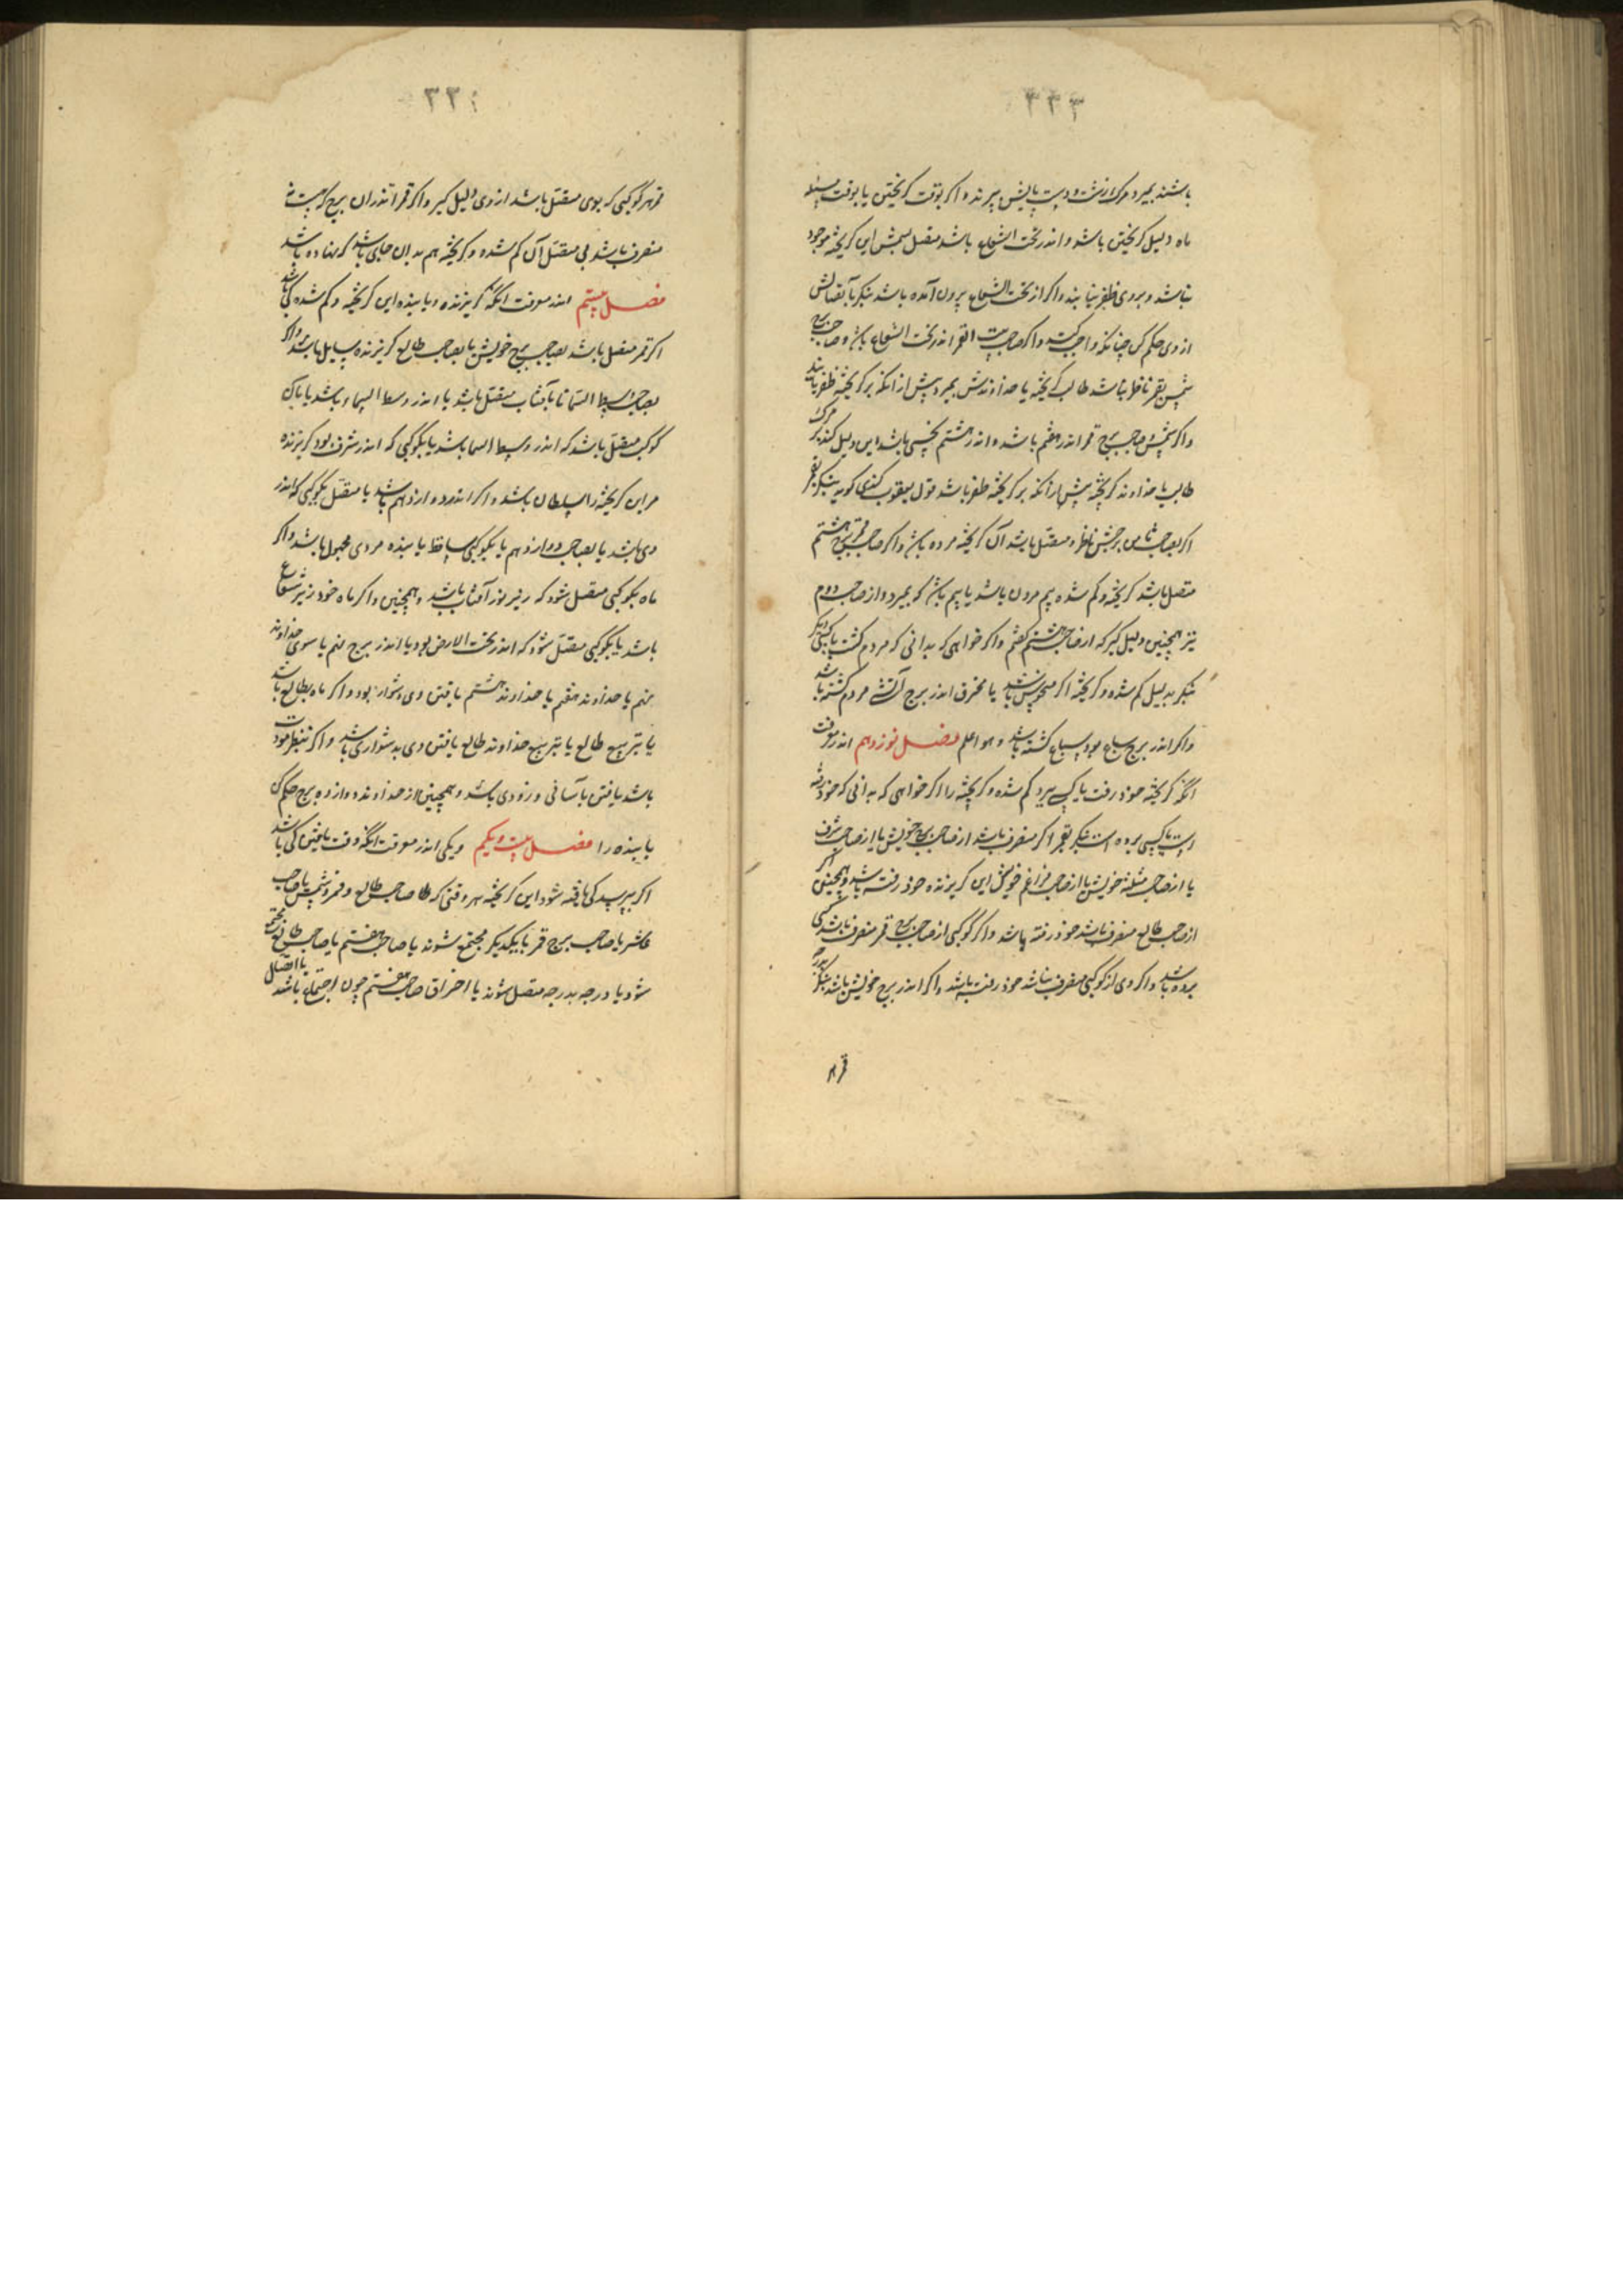 ۳۳۳
باشند بمیرد و مرکش از نشت و دست پایش ببرند و اکر بوقت کریختن یا بوقت مسئله
ماه دلیل کریختن باشد و اندر تحت الشعاع باشد متصل بشمس این کریخته موجود
نباشد و بر وی ظفر نیابند و اکر از تحت الشعاع بیرون آمده باشد بنکر باتصالش
از وی حکم کن چنانکه واجبست و اکر صاحب بیت القمر اندر تحت الشعاع باشد و صاحب برج
شمس بقمر ناظر نباشد طالب کریخته یا خداوندش بمیرد پیش از آنکه بر کریخته ظفر یابند
و اکر شمس و صاحب برج قمر اندر هفتم باشد و اندر هشتم نحسی باشد این دلیل کند بر مرک
طالب یا خداوند کریخته پیش از آنکه بر کریخته ظفر باشد قول یعقوب کندی کوید بنکر بقمر
اکر بصاحب ثامن برجش ناظر و متصل باشد آن کریخته مرده باشد و اکر صاحب برج قمر بهشتم
متصل باشد کریخته و کم شده بیم مردن باشد یا بیم باشد که بمیرد و از صاحب دوم
نیز همچنین دلیل کیر که از صاحب هشتم کفتم و اکر خواهی که بدانی که مردم کشت یا کسی دیکر
بنکر بدلیل کم شده و کریخته اکر منحوس باشد یا محترق اندر برج آتشی مردم کشته باشد
و اکر اندر برج سباع بود سباع کشته باشد و هو اعلم فصل نوزدهم اندر معرفت
آنکه کریخته خود رفت یا کسی ببرد کم شده و کریخته را اکر خواهی که بدانی که خود رفته
است یا کسی برده است بنکر بقمر اکر منصرف باشد از صاحب برج خویش یا از صاحب شرف
یا از صاحب مثلثه خویش یا از صاحب فراغم خویش این کریزنده خود رفته باشد و همچنین اکر
از صاحب طالع منصرف باشد خود رفته باشد و اکر کوکبی از صاحب برج قمر منصرف باشد کسی
برده باشد و اکر وی از کوکبی منصرف نباشد خود رفته باشد و اکر اندر برج خویش باشد بنکر
قمر
۳۳
قمر هر کوکبی که بوی متصل باشد از وی دلیل کیر و اکر قمر اندر آن برج که هست نه
منصرف باشد نی متصل آن کم شده و کریخته هم بدان جای باشد که نهاده باشد
فصل بیستم اندر معرفت آنکه کریزنده و یابنده این کریخته و کم شده کی باشد
اکر قمر متصل باشد بصاحب برج خویش یا بصاحب طالع کریزنده سایل باشد و اکر
بصاحب وسط السما یا بآفتاب متصل باشد یا اندر وسط السماء باشد یا بآن
کوکب متصل باشد که اندر وسط السما باشد یا بکوکبی که اندر شرف بود کریزنده
مر این کریخته را سلطان باشد و اکر اندر دوازدهم باشد یا متصل بکوکبی که اندر
وی باشد یا بصاحب دوازدهم یا بکوکبی ساقط یابنده مردی مجهول باشد و اکر
ماه بکوکبی متصل شود که زیر نور آفتاب باشد و همچنین و اکر ماه خود زیر شعاع
باشد یا بکوکبی متصل شود که اندر تحت الارض بود یا اندر برج نهم یا سوی خداوند
نهم یا خداوند هفتم یا خداوند هشتم یافتن وی دشوار بود و اکر ماه بطالع باشد
یا تربیع طالع یا تربیع خداوند طالع یافتن وی بدشواری باشد و اکر بنظر مودت
باشد یافتن بآسانی و زودی باشد و همچنین از خداوند دوازده برج حکم کن
یابنده را فصل بیست و یکم و یکی اندر معرفت آنکه وقت یافتن کی باشد
اکر بپرسید کی یافته شود این کریخته هر وقتی که صاحب طالع و قمر و شمس یا صاحب
عاشر یا صاحب برج قمر با یکدیکر مجتمع شوند یا صاحب هفتم با صاحب طالع مجتمع
شود یا درجه بدرجه متصل شوند یا احتراق صاحب هفتم چون اجتماع باشد یا اتصال